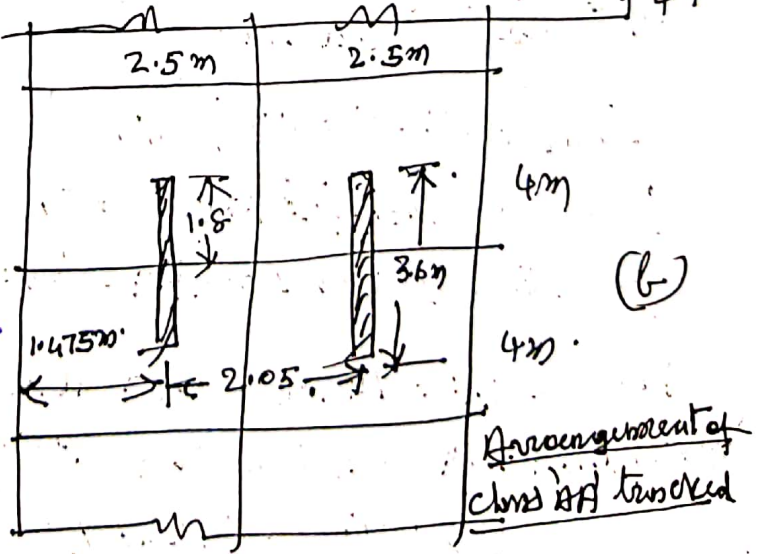 2.5m 2.5m
4m
1.8
3.6m
(b)
1.475m.
2.05
4m.
Arrangement of
class AA tracked